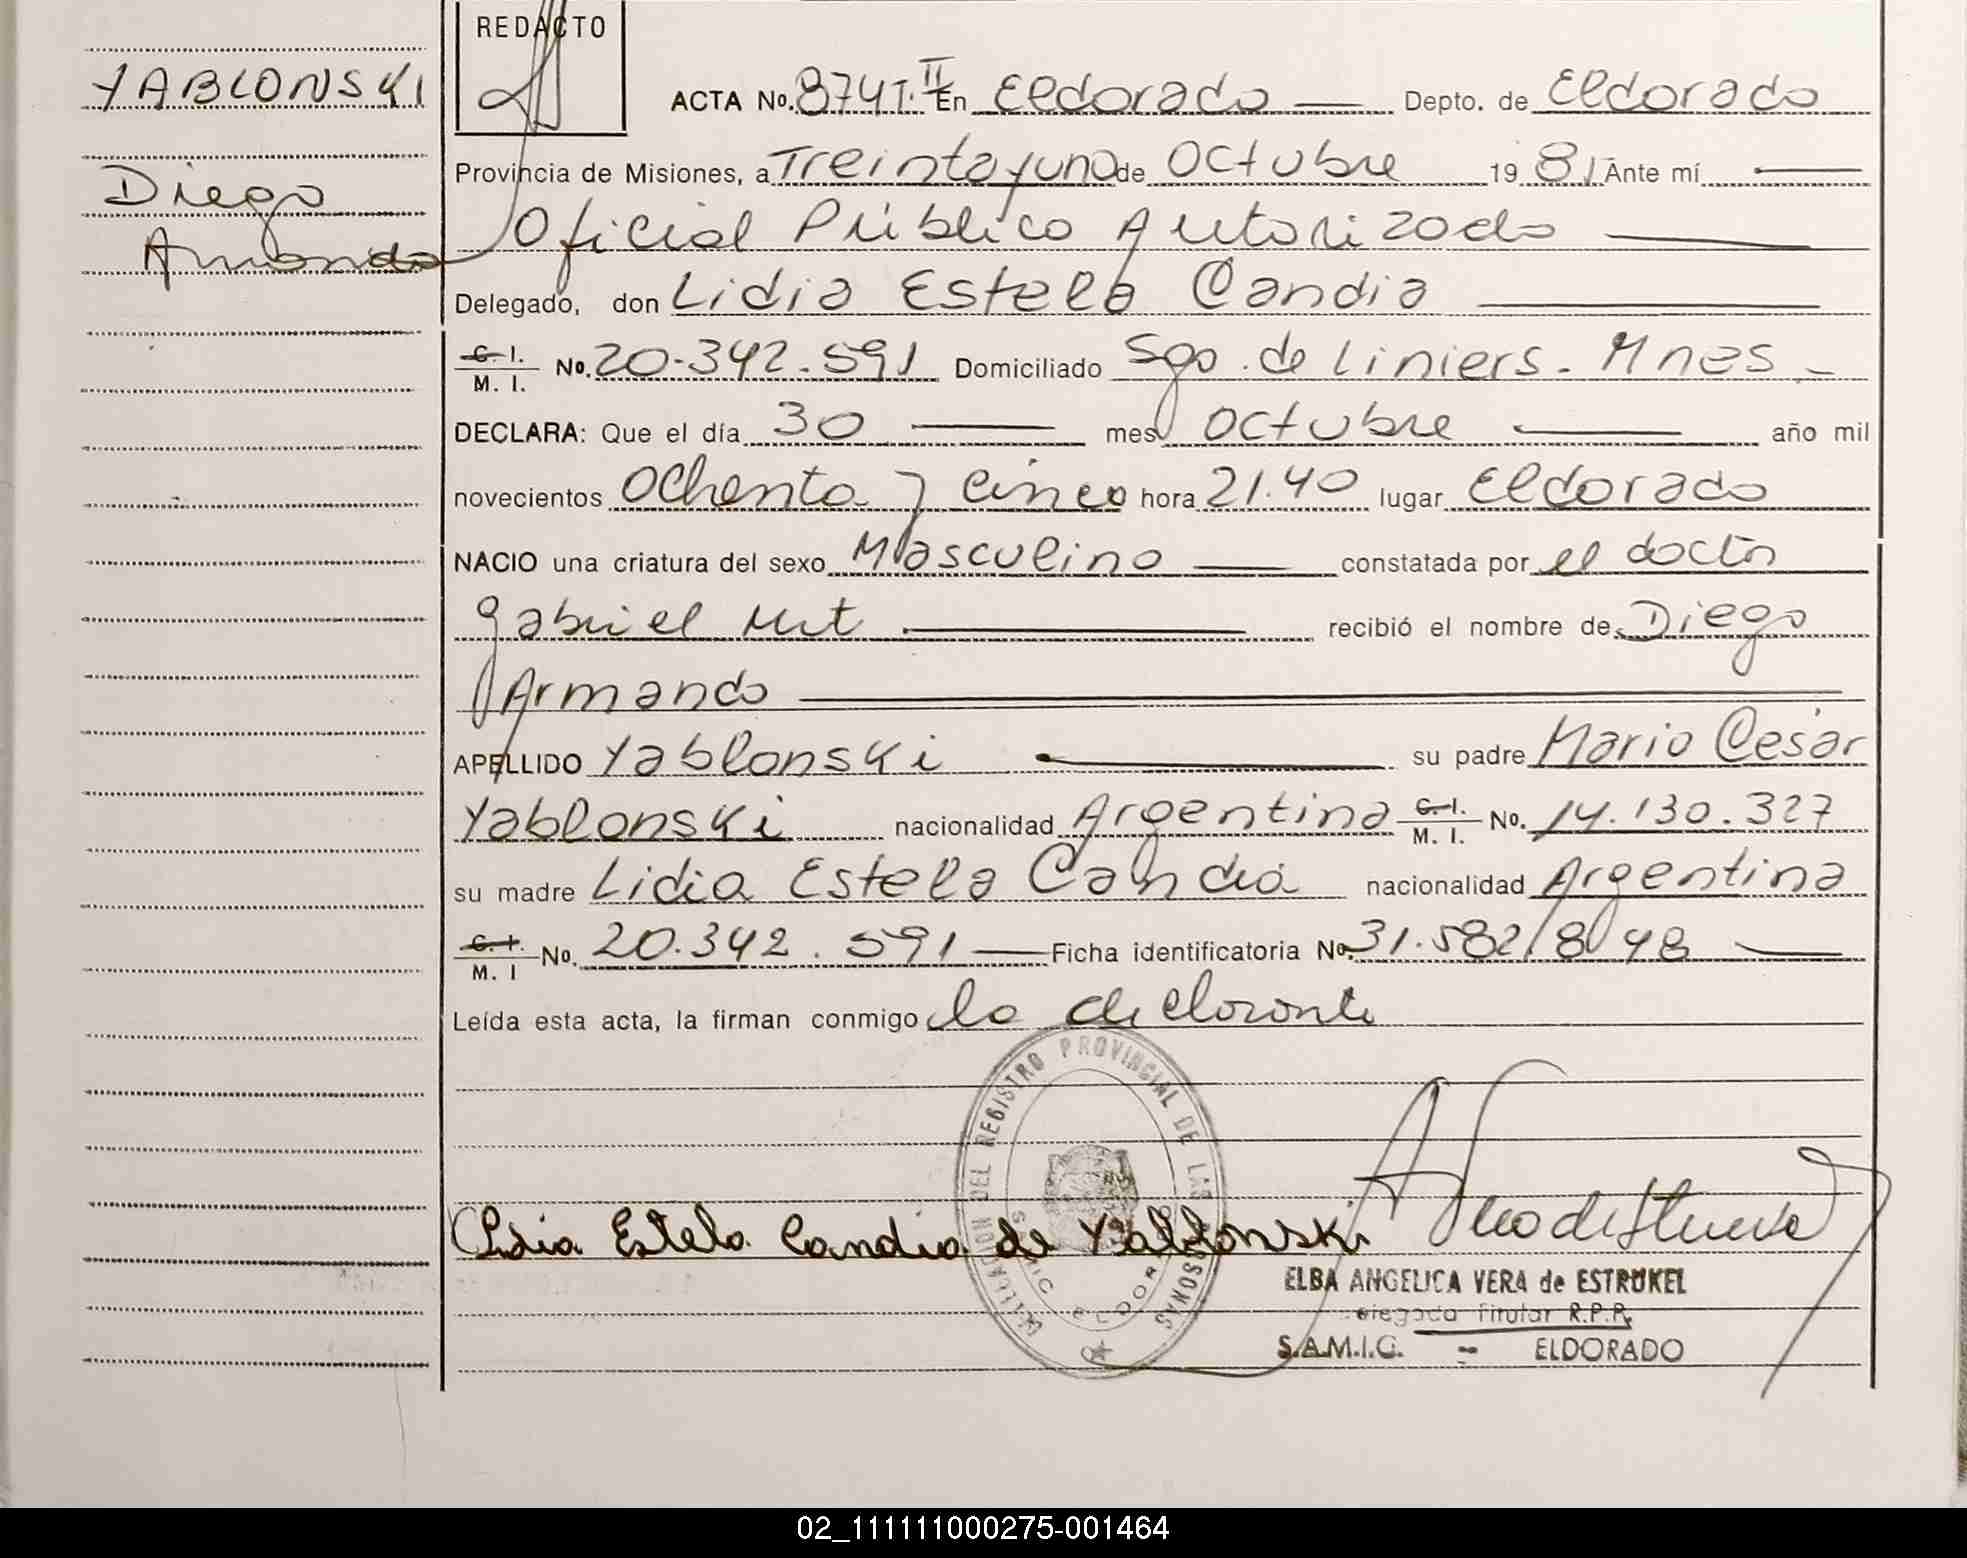 YABLONSKI
Diego
Armando
REDACTO
ACTA No. 874 T. II En Eldorado Depto. de Eldorado
Provincia de Misiones, a Treinta y uno de Octubre 19 81 Ante mí
Oficial Público Autorizado
Delegado, don Lidia Estela Candia
C. I. M. I. No. 20.342.591 Domiciliado Sgo. de Liniers. Mnes
DECLARA: Que el día 30 mes Octubre año mil
novecientos Ochenta y Cinco hora 21.40 lugar Eldorado
NACIO una criatura del sexo Masculino constatada por el doctor
Gabriel recibió el nombre de Diego
Armando
APELLIDO Yablonski su padre Mario Cesar
Yablonski nacionalidad Argentina C. I. M. I. No. 14.130.327
su madre Lidia Estela Candia nacionalidad Argentina
C. I. M. I No. 20.342.591 Ficha identificatoria No. 31.582/8 48
Leída esta acta, la firman conmigo la declarante
DELEGACION DEL REGISTRO PROVINCIAL DE LAS PERSONAS
ELDORADO
Lidia Estela Candia de Yablonski
ELBA ANGELICA VERA de ESTRUKEL
Delegada Titular R.P.P.
S.A.M.I.C. - ELDORADO
02_111111000275-001464